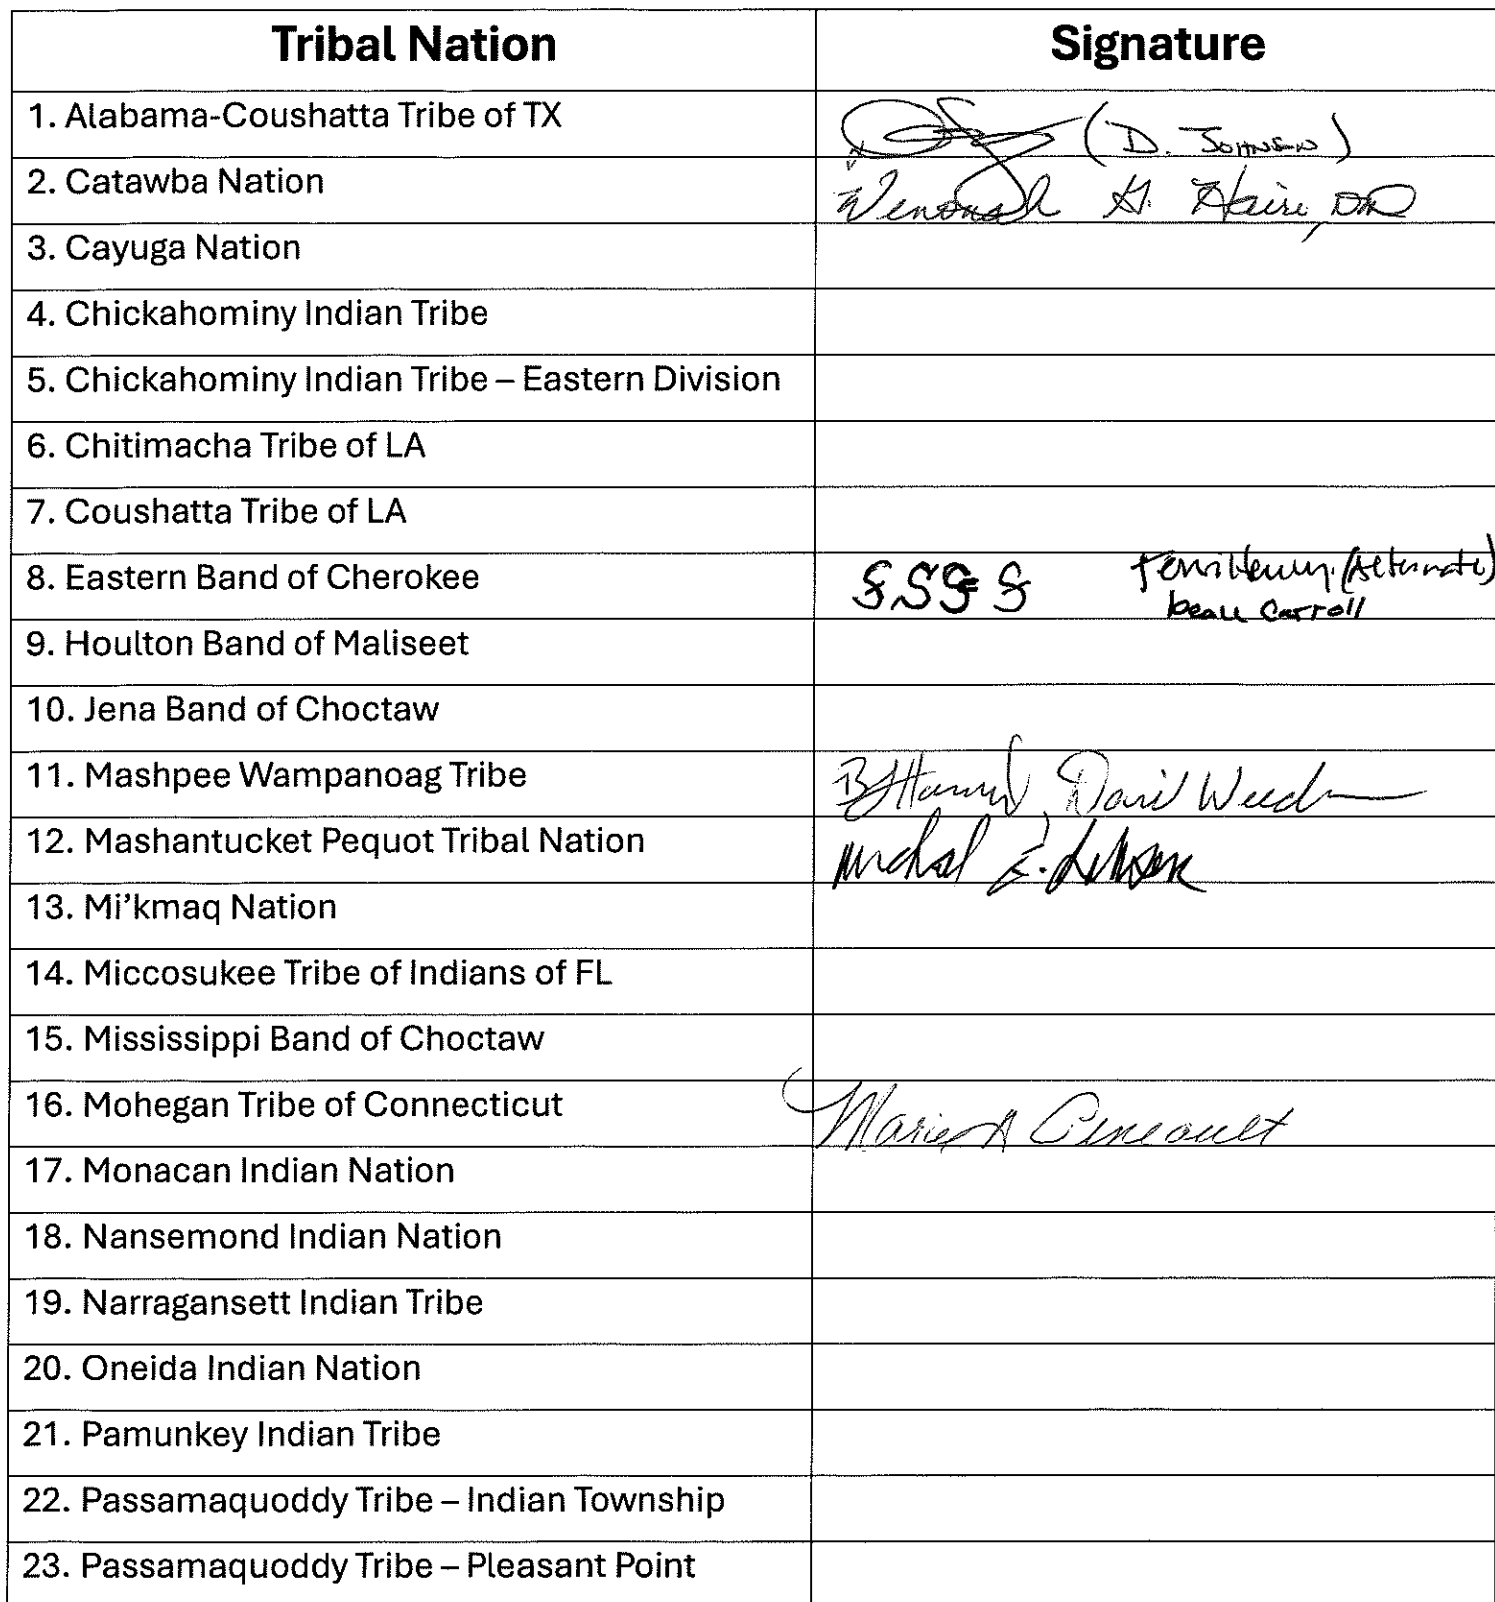 Tribal Nation Signature
1. Alabama-Coushatta Tribe of TX (D. Johnson)
2. Catawba Nation Wenonah G. Haire, DMD
3. Cayuga Nation
4. Chickahominy Indian Tribe
5. Chickahominy Indian Tribe – Eastern Division
6. Chitimacha Tribe of LA
7. Coushatta Tribe of LA
8. Eastern Band of Cherokee Terri Henry (Alternate)
beau carroll
9. Houlton Band of Maliseet
10. Jena Band of Choctaw
11. Mashpee Wampanoag Tribe David Weeden
12. Mashantucket Pequot Tribal Nation Michael E. Johnson
13. Mi’kmaq Nation
14. Miccosukee Tribe of Indians of FL
15. Mississippi Band of Choctaw
16. Mohegan Tribe of Connecticut Marie A Pineault
17. Monacan Indian Nation
18. Nansemond Indian Nation
19. Narragansett Indian Tribe
20. Oneida Indian Nation
21. Pamunkey Indian Tribe
22. Passamaquoddy Tribe – Indian Township
23. Passamaquoddy Tribe – Pleasant Point